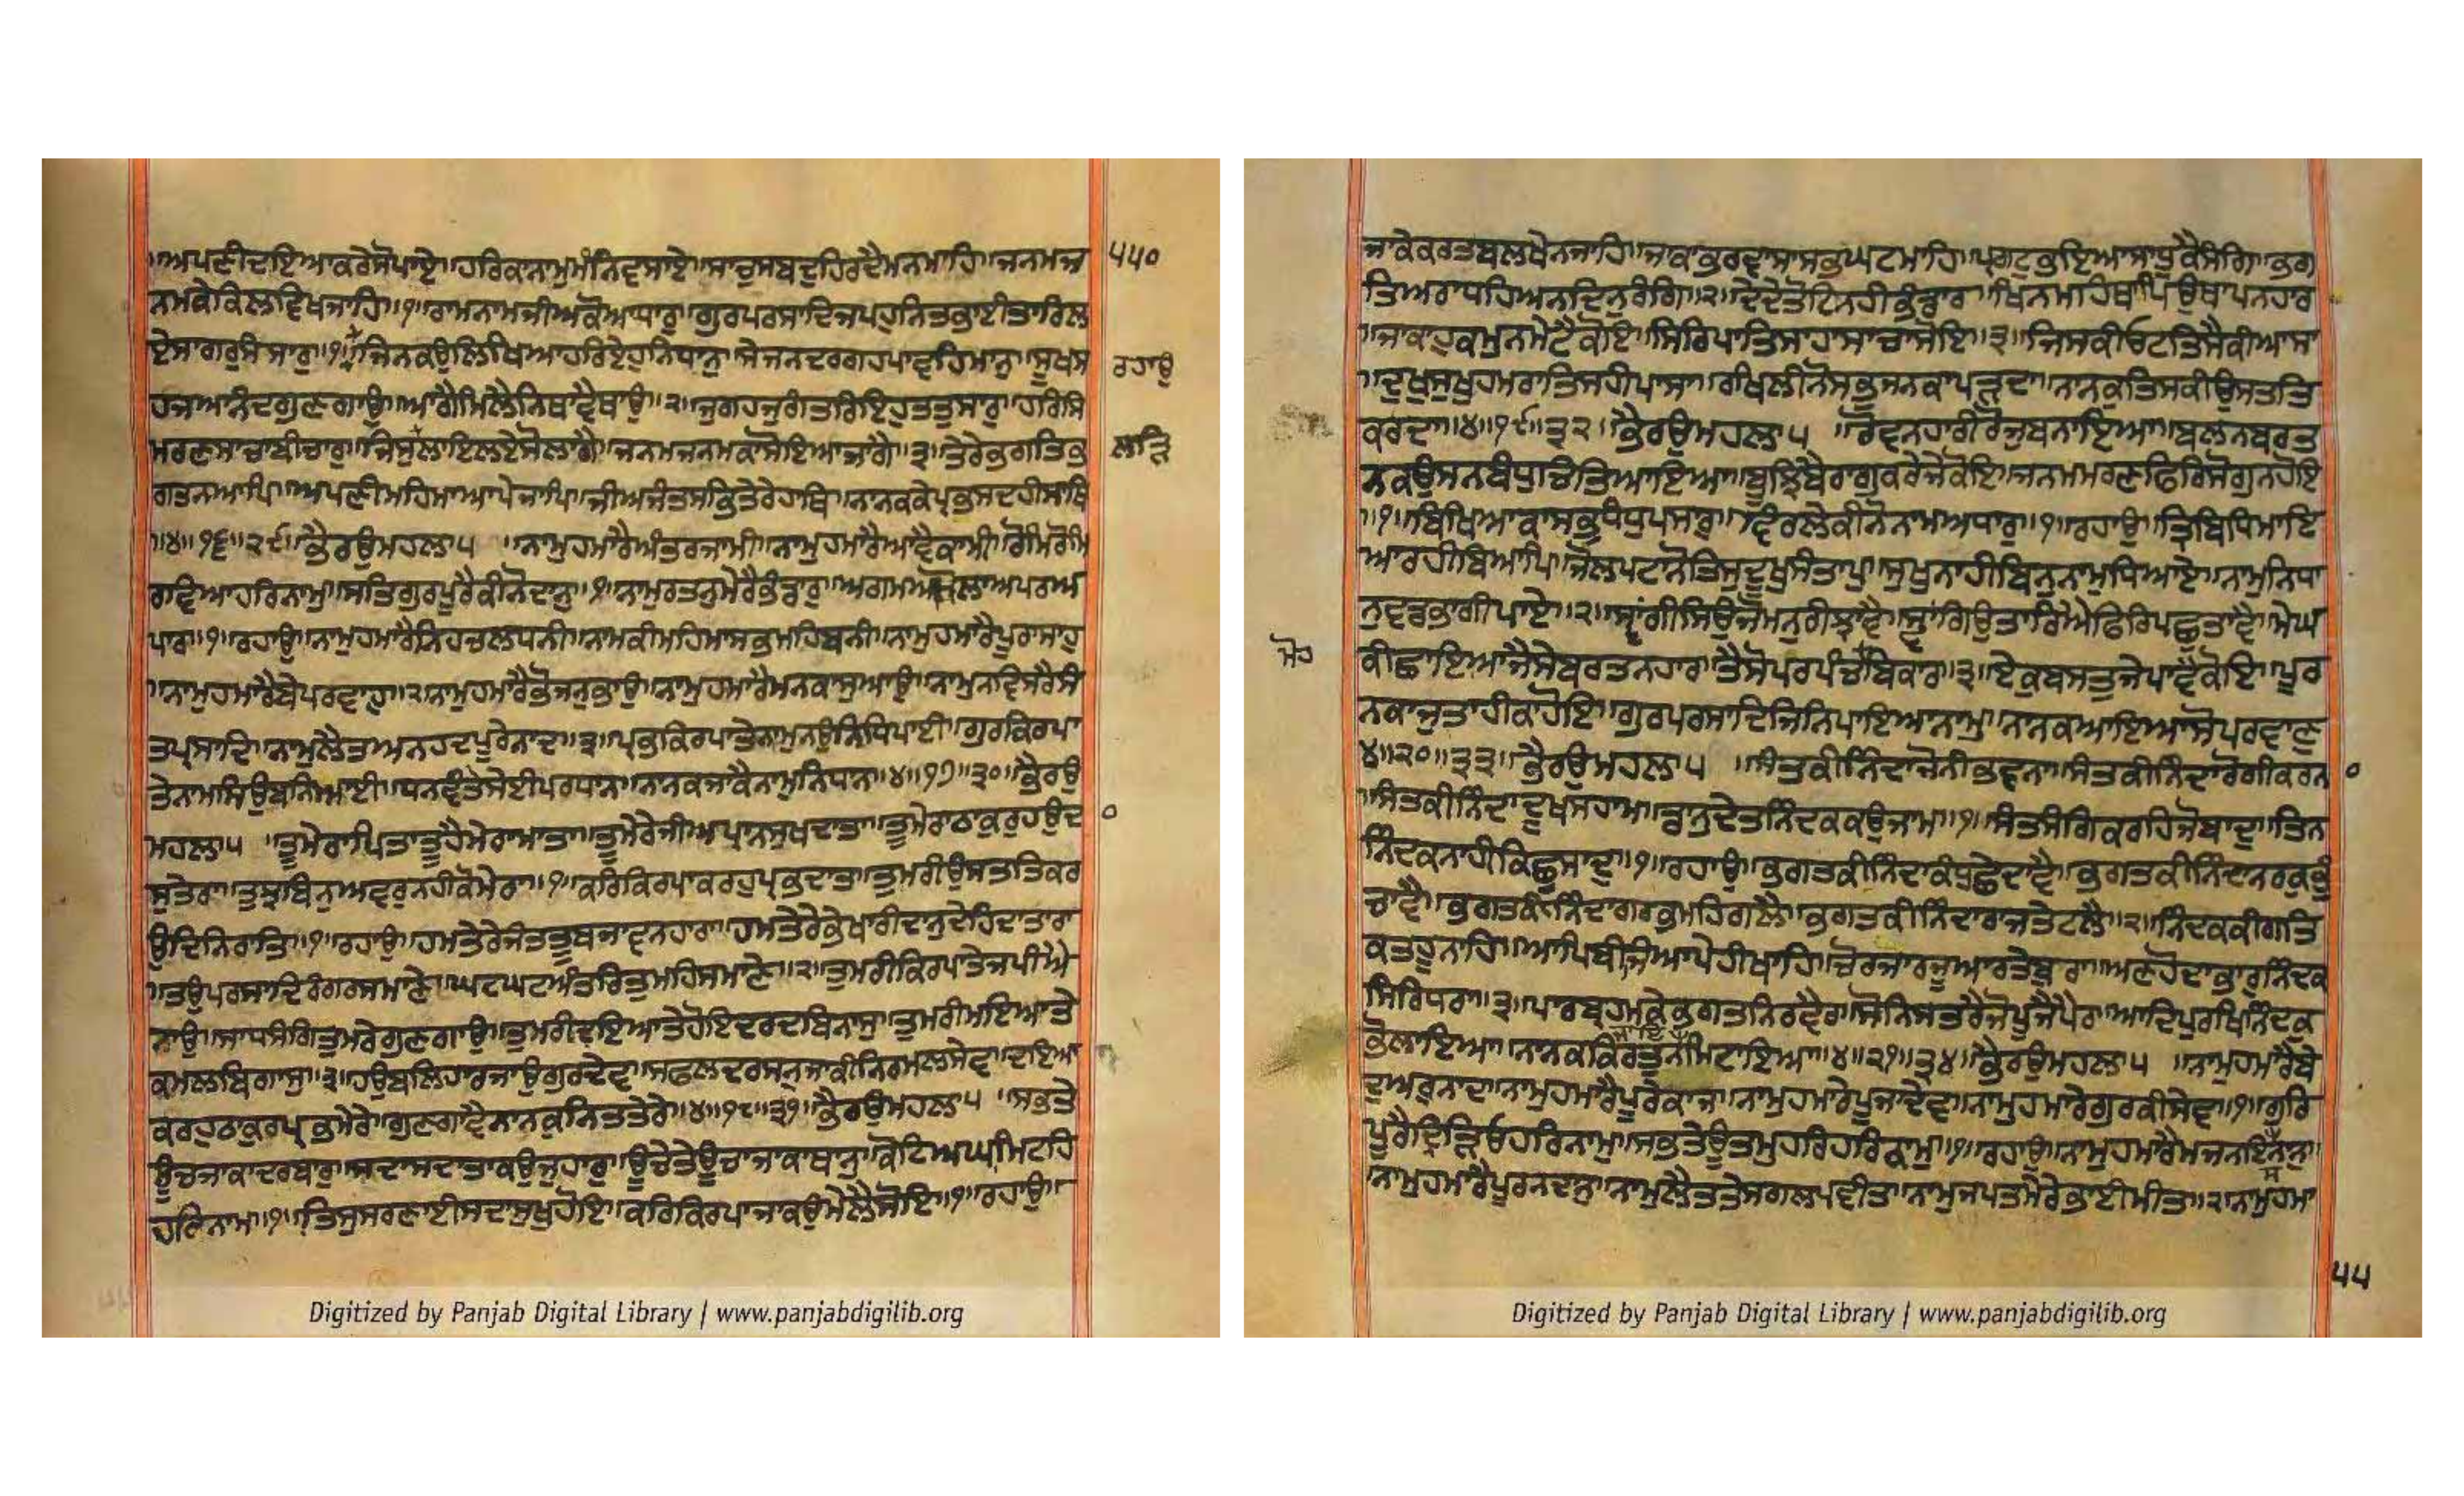 ॥ਅਪਣੀਦਇਆਕਰੇਸੋਪਾਏ॥ਹਰਿਕਾਨਾਮੁਮੰਨਿਵਸਾਏ॥ਸਾਚੁਸਬਦੁਹਿਰਦੈਮਨਮਾਹਿ॥ਜਨਮਜ ੫੫੦
ਨਮਕੇਕਿਲਵਿਖਜਾਹਿ॥੧॥ਰਾਮਨਾਮਜੀਅਕੋਆਧਾਰੁ॥ਗੁਰਪਰਸਾਦਿਜਪਹੁਨਿਤਭਾਈਤਾਰਿਲ
ਏਸਾਗਰੁਸੰਸਾਰੁ॥੧॥ਜਿਨਕਉਲਿਖਿਆਹਰਿਏਹੁਨਿਧਾਨੁ॥ਸੇਜਨਦਰਗਹਪਾਵਹਿਮਾਨੁ॥ਸੂਖਸ ਰਹਾਉ
ਹਜਆਨੰਦਗੁਣਗਾਉ॥ਆਗੈਮਿਲੈਨਿਥਾਵੇਥਾਉ॥੨॥ਜੁਗਹਜੁਗੰਤਰਿਇਹੁਤਤੁਸਾਰੁ॥ਹਰਿਸਿ
ਮਰਣਸਾਚਾਬੀਚਾਰੁ॥ਜਿਸੁਲਾਇਲਏਸੋਲਾਗੈ॥ਜਨਮਜਨਮਕਾਸੋਇਆਜਾਗੈ॥੩॥ਤੇਰੇਭਗਤਿਭ ਲੜਿ
ਗਤਨਆਪਿ॥ਅਪਣੀਮਹਿਮਾਆਪੇਜਾਪਿ॥ਜੀਅਜੰਤਸਭਿਤੇਰੇਹਾਥਿ॥ਨਾਨਕਕੇਪ੍ਰਭਸਦਹੀਸਾਥਿ
॥੪॥੧੬॥੨੯॥ਭੈਰਉਮਹਲਾ੫ ॥ਨਾਮੁਹਮਾਰੈਅੰਤਰਜਾਮੀ॥ਨਾਮੁਹਮਾਰੈਆਵੈਕਾਮੀ॥ਰੋਮਿਰੋਮਿ
ਰਵਿਆਹਰਿਨਾਮੁ॥ਸਤਿਗੁਰਪੂਰੈਕੀਨੋਦਾਨੁ॥੧॥ਨਾਮੁਰਤਨੁਮੇਰੈਭੰਡਾਰੁ॥ਅਗਮਅਮੋਲਾਅਪਰਅ
ਪਾਰ॥੧॥ਰਹਾਉ॥ਨਾਮੁਹਮਾਰੈਨਿਹਚਲਧਨੀ॥ਨਾਮਕੀਮਹਿਮਾਸਭਮਹਿਬਨੀ॥ਨਾਮੁਹਮਾਰੈਪੂਰਾਸਾਹੁ
॥ਨਾਮੁਹਮਾਰੈਬੇਪਰਵਾਹੁ॥੨॥ਨਾਮੁਹਮਾਰੈਭੋਜਨੁਭਾਉ॥ਨਾਮੁਹਮਾਰੈਮਨਕਾਸੁਆਉ॥ਨਾਮੁਨਵਿਸਰੈਸੰ
ਤਪ੍ਰਸਾਦਿ॥ਨਾਮੁਲੈਤਅਨਹਦਪੂਰੇਨਾਦ॥੩॥ਪ੍ਰਭਕਿਰਪਾਤੇਨਾਮੁਨਉਨਿਧਿਪਾਈ॥ਗੁਰਕਿਰਪਾ
ਤੇਨਾਮਸਿਉਬਨਿਆਈ॥ਧਨਵੰਤੇਸੇਈਪਰਧਾਨਾ॥ਨਾਨਕਜਾਕੈਨਾਮੁਨਿਧਾਨ॥੪॥੧੭॥੩੦॥ਭੈਰਉ
ਮਹਲਾ੫ ॥ਤੂਮੇਰਾਪਿਤਾਤੂਹੈਮੇਰਾਮਾਤਾ॥ਤੂਮੇਰੇਜੀਅਪ੍ਰਾਨਸੁਖਦਾਤਾ॥ਤੂਮੇਰਾਠਾਕੁਰੁਹਉਦਾ ੦
ਸੁਤੇਰਾ॥ਤੁਝਬਿਨੁਅਵਰੁਨਹੀਕੋਮੇਰਾ॥੧॥ਕਰਿਕਿਰਪਾਕਰਹੁਪ੍ਰਭਦਾਤਾ॥ਤੁਮਰੀਉਸਤਤਿਕਰ
ਉਦਿਨਿਰਾਤਿ॥੧॥ਰਹਾਉ॥ਹਮਤੇਰੇਜੰਤਤੂਬਜਾਵਨਹਾਰਾ॥ਹਮਤੇਰੇਭੇਖਾਰੀਦਾਨੁਦੇਹਿਦਾਤਾਰਾ
॥ਤਉਪਰਸਾਦਿਰੰਗਰਸਮਾਣੇ॥ਘਟਘਟਅੰਤਰਿਤੁਮਹਿਸਮਾਣੇ॥੨॥ਤੁਮਰੀਕਿਰਪਾਤੇਜਪੀਐ
ਨਾਉ॥ਸਾਧਸੰਗਿਤੁਮਰੇਗੁਣਗਾਉ॥ਤੁਮਰੀਦਇਆਤੇਹੋਇਦਰਦਬਿਨਾਸੁ॥ਤੁਮਰੀਮਇਆਤੇ
ਕਮਲਬਿਗਾਸੁ॥੩॥ਹਉਬਲਿਹਾਰਜਾਉਗੁਰਦੇਵ॥ਸਫਲਦਰਸਨੁਜਾਕੀਨਿਰਮਲਸੇਵ॥ਦਇਆ
ਕਰਹੁਠਾਕੁਰਪ੍ਰਭਮੇਰੇ॥ਗੁਣਗਾਵੈਨਾਨਕੁਨਿਤਤੇਰੇ॥੪॥੧੮॥੩੧॥ਭੈਰਉਮਹਲਾ੫ ॥ਸਭਤੇ
ਊਚਜਾਕਾਦਰਬਾਰੁ॥ਸਦਾਸਦਾਤਾਕਉਜੁਹਾਰੁ॥ਊਚੇਤੇਊਚਾਜਾਕਾਥਾਨੁ॥ਕੋਟਿਅਘਾਮਿਟਹਿ
ਹਰਿਨਾਮ॥੧॥ਤਿਸੁਸਰਣਾਈਸਦਾਸੁਖੁਹੋਇ॥ਕਰਿਕਿਰਪਾਜਾਕਉਮੇਲੈਸੋਇ॥੧॥ਰਹਾਉ॥
ਜਾਕੇਕਰਤਬਲਖੇਨਜਾਹਿ॥ਜਾਕਾਭਰਵਾਸਾਸਭਘਟਮਾਹਿ॥ਪ੍ਰਗਟੁਭਇਆਸਾਧੂਕੈਸੰਗਿ॥ਭਗ
ਤਿਅਰਾਧਹਿਅਨਦਿਨੁਰੰਗਿ॥੨॥ਦੇਦੇਤੋਟਿਨਹੀਭੰਡਾਰ॥ਖਿਨਮਾਹਿਥਾਪਿਉਥਾਪਨਹਾਰ
॥ਜਾਕਾਹੁਕਮੁਨਮੇਟੈਕੋਇ॥ਸਿਰਿਪਾਤਿਸਾਹਾਸਾਚਾਸੋਇ॥੩॥ਜਿਸਕੀਓਟਤਿਸੈਕੀਆਸਾ
॥ਦੁਖੁਸੁਖੁਹਮਰਾਤਿਸਹੀਪਾਸਾ॥ਰਾਖਿਲੀਨੋਸਭੁਜਨਕਾਪੜਦਾ॥ਨਾਨਕੁਤਿਸਕੀਉਸਤਤਿ
ਕਰਦਾ॥੪॥੧੯॥੩੨॥ਭੈਰਉਮਹਲਾ੫ ॥ਰੋਵਨਹਾਰੀਰੋਜੁਬਨਾਇਆ॥ਬਲਨਬਰਤ
ਨਕਉਸਨਬੰਧੁਚਿਤਿਆਇਆ॥ਬੂਝਿਬੈਰਾਗੁਕਰੇਜੇਕੋਇ॥ਜਨਮਮਰਣਫਿਰਿਸੋਗੁਨਹੋਇ
॥੧॥ਬਿਖਿਆਕਾਸਭੁਧੰਧੁਪਸਾਰੁ॥ਵਿਰਲੇਕੀਨੋਨਾਮਅਧਾਰੁ॥੧॥ਰਹਾਉ॥ਤ੍ਰਿਬਿਧਿਮਾਇ
ਆਰਹੀਬਿਆਪਿ॥ਜੋਲਪਟਾਨੋਤਿਸੁਦੂਖਸੰਤਾਪੁ॥ਸੁਖੁਨਾਹੀਬਿਨੁਨਾਮੁਧਿਆਏ॥ਨਾਮੁਨਿਧਾ
ਨੁਵਡਭਾਗੀਪਾਏ॥੨॥ਸ੍ਵਾਂਗੀਸਿਉਜੋਮਨੁਰੀਝਾਵੈ॥ਸ੍ਵਾਂਗਿਉਤਾਰਿਐਫਿਰਿਪਛੁਤਾਵੈ॥ਮੇਘ
ਮੋਹ ਕੀਛਾਇਆਜੈਸੇਬਰਤਨਹਾਰ॥ਤੈਸੋਪਰਪੰਚੁਬਿਕਾਰ॥੩॥ਏਕਬਸਤੁਜੇਪਾਵੈਕੋਇ॥ਪੂਰ
ਨਕਾਜੁਤਾਹੀਕਾਹੋਇ॥ਗੁਰਪਰਸਾਦਿਜਿਨਿਪਾਇਆਨਾਮੁ॥ਨਾਨਕਆਇਆਸੋਪਰਵਾਣੁ
੪॥੨੦॥੩੩॥ਭੈਰਉਮਹਲਾ੫ ॥ਸੰਤਕੀਨਿੰਦਾਜੋਨੀਭਵਨਾ॥ਸੰਤਕੀਨਿੰਦਾਰੋਗੀਕਰਨਾ ੦
॥ਸੰਤਕੀਨਿੰਦਾਦੂਖਸਹਾਮ॥ਡਾਨੁਦੇਤਨਿੰਦਕਕਉਜਾਮ॥੧॥ਸੰਤਸੰਗਿਕਰਹਿਜੋਬਾਦੁ॥ਤਿਨ
ਨਿੰਦਕਨਾਹੀਕਿਛੁਸਾਦੁ॥੧॥ਰਹਾਉ॥ਭਗਤਕੀਨਿੰਦਾਕੰਧੁਛੇਦਾਵੈ॥ਭਗਤਕੀਨਿੰਦਾਨਰਕੁਭੁੰ
ਚਾਵੈ॥ਭਗਤਕੀਨਿੰਦਾਗਰਭਮਹਿਗਲੈ॥ਭਗਤਕੀਨਿੰਦਾਰਾਜਤੇਟਲੈ॥੨॥ਨਿੰਦਕਕੀਗਤਿ
ਕਤਹੂਨਾਹਿ॥ਆਪਿਬੀਜਿਆਪੇਹੀਖਾਹਿ॥ਚੋਰਜਾਰਜੂਆਰਤੇਬੁਰਾ॥ਅਣਹੋਦਾਭਾਰੁਨਿੰਦਕ
ਸਿਰਿਧਰਾ॥੩॥ਪਾਰਬ੍ਰਹਮਕੇਭਗਤਨਿਰਵੈਰ॥ਸੋਨਿਸਤਰੈਜੋਪੂਜੈਪੈਰ॥ਆਦਿਪੁਰਖਿਨਿੰਦਕੁ
ਭੋਲਾਇਆ॥ਨਾਨਕਕਿਰਤੁਨਮਿਟਾਇਆ॥੪॥੨੧॥੩੪॥ਭੈਰਉਮਹਲਾ੫ ॥ਨਾਮੁਹਮਾਰੈਬੇ
ਦਅਰੁਨਾਦ॥ਨਾਮੁਹਮਾਰੈਪੂਰੇਕਾਜ॥ਨਾਮੁਹਮਾਰੈਪੂਜਾਦੇਵ॥ਨਾਮੁਹਮਾਰੇਗੁਰਕੀਸੇਵ॥੧॥ਗੁਰਿ
ਪੂਰੈਦ੍ਰਿੜਿਓਹਰਿਨਾਮੁ॥ਸਭਤੇਊਤਮੁਹਰਿਹਰਿਕਾਮੁ॥੧॥ਰਹਾਉ॥ਨਾਮੁਹਮਾਰੈਮਜਨਇਸਨਾਨੁ॥
॥ਨਾਮੁਹਮਾਰੈਪੂਰਨਦਾਨੁ॥ਨਾਮੁਲੈਤਤੇਸਗਲਪਵੀਤ॥ਨਾਮੁਜਪਤਮੇਰੇਭਾਈਮੀਤ॥੨॥ਨਾਮੁਹਮਾ
੫੫
Digitized by Panjab Digital Library | www.panjabdigilib.org
Digitized by Panjab Digital Library | www.panjabdigilib.org